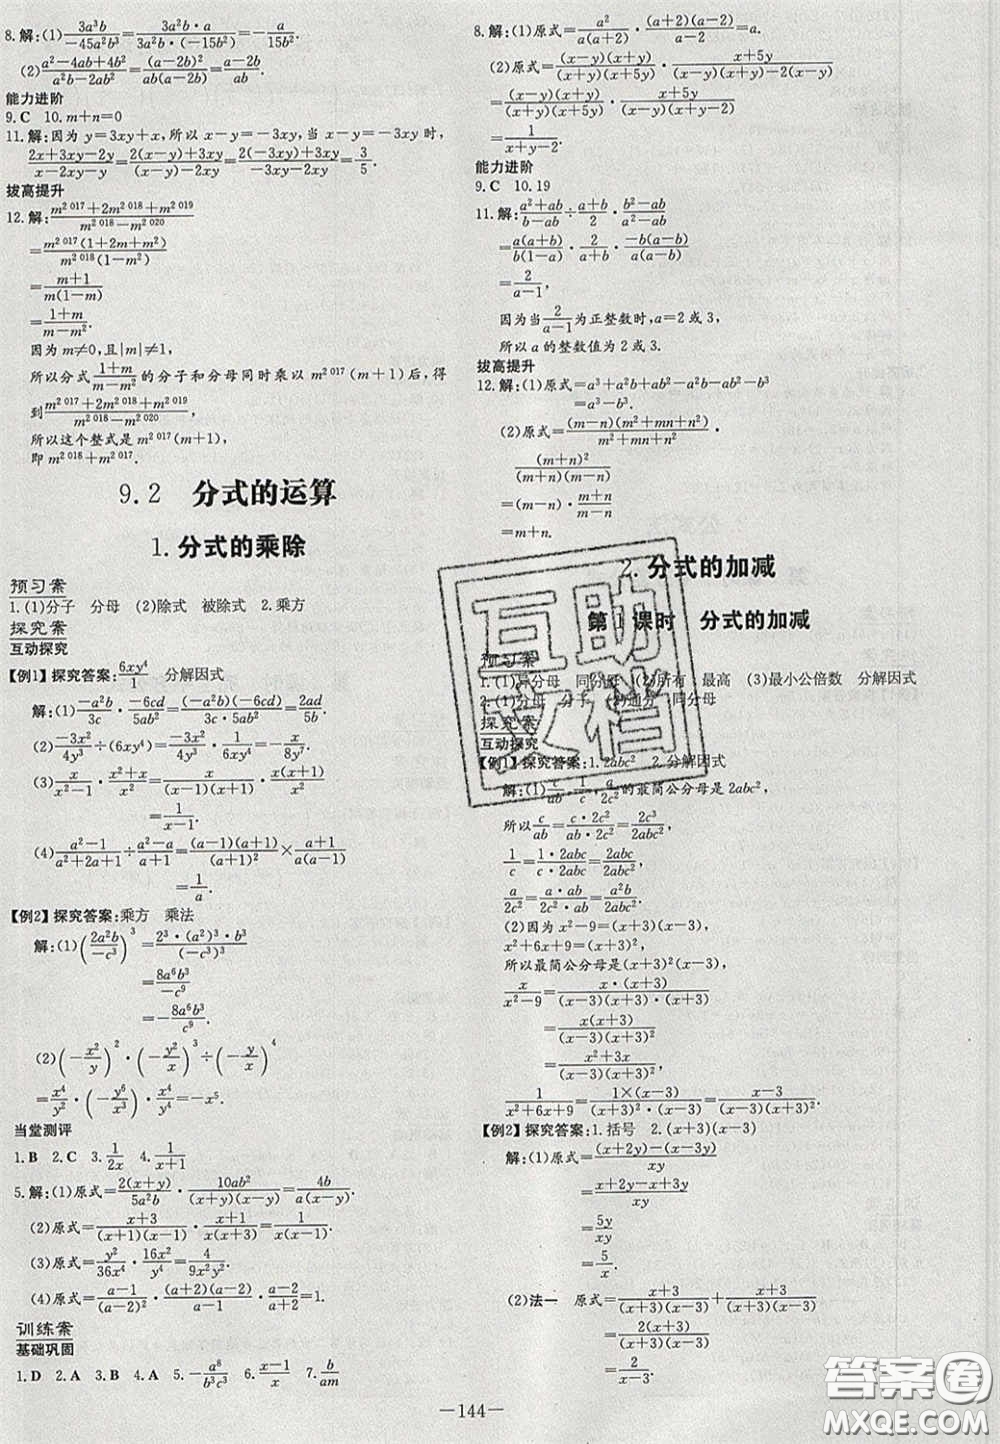 8.解:(1)3a³b/−45a²b³=3a²b·a/3a²b·(−15b²)=−a/15b².
(2)a²−4ab+4b²/a²b−2ab²=(a−2b)²/ab(a−2b)=a−2b/ab.
能力进阶
9.C 10.m+n=0
11.解:因为y=3xy+x,所以x−y=−3xy,当x−y=−3xy时,
2x+3xy−2y/x−2xy−y=2(x−y)+3xy/(x−y)−2xy=2(−3xy)+3xy/−3xy−2xy=−3xy/−5xy=3/5.
拔高提升
12.解:m²⁰¹⁷+2m²⁰¹⁸+m²⁰¹⁹/m²⁰¹⁸−m²⁰²⁰
=m²⁰¹⁷(1+2m+m²)/m²⁰¹⁸(1−m²)
=m+1/m(1−m)
=1+m/m−m².
因为m≠0,且|m|≠1,
所以分式1+m/m−m²的分子和分母同时乘以m²⁰¹⁷(m+1)后,得
到m²⁰¹⁷+2m²⁰¹⁸+m²⁰¹⁹/m²⁰¹⁸−m²⁰²⁰,
所以这个整式是m²⁰¹⁷(m+1),
即m²⁰¹⁸+m²⁰¹⁷.
9.2 分式的运算
1.分式的乘除
预习案
1.(1)分子 分母 (2)除式 被除式 2.乘方
探究案
互动探究
【例1】探究答案:6xy⁴/1 分解因式
解:(1)−a²b/3c·−6cd/5ab²=(−a²b)·(−6cd)/3c·5ab²=2ad/5b.
(2)−3x²/4y³÷(6xy⁴)=−3x²/4y³·1/6xy⁴=−x/8y⁷.
(3)x/x²−1·x²+x/x²=x·x(x+1)/(x−1)(x+1)x²
=1/x−1.
(4)a²−1/a²+2a+1÷a²−a/a+1=(a−1)(a+1)/(a+1)²×a+1/a(a−1)
=1/a.
【例2】探究答案:乘方 乘法
解:(1)(2a²b/−c³)³=2³·(a²)³·b³/(−c³)³
=8a⁶b³/−c⁹
=−8a⁶b³/c⁹.
(2)(−x²/y)²·(−y²/x)³÷(−y/x)⁴
=x⁴/y²·(−y⁶/x³)·x⁴/y⁴=−x⁵.
当堂测评
1.B 2.C 3.1/2x 4.1/x+1
5.解:(1)原式=2(x+y)/5a²b·10ab²/(x+y)(x−y)=4b/a(x−y).
(2)原式=x+3/(x+1)(x−1)·x+1/(x+3)²=1/(x−1)(x+3).
(3)原式=y²/36x⁴·16x²/y⁴=4/9x²y².
(4)原式=a−1/(a−2)²·(a+2)(a−2)/a−1·a−2/a+2=1.
训练案
基础巩固
1.D 2.A 3.B 4.A 5.−a⁸/b³c³ 6.x−1/x 7.b/am
8.解:(1)原式=a²/a(a+2)·(a+2)(a−2)/a−2=a.
(2)原式=(x−y)(x+y)/(x+y)(x+5y)·x+5y/(x+y)(x−y)−2(x−y)
=(x−y)(x+y)/(x+y)(x+5y)·x+5y/(x−y)(x+y−2)
=1/x+y−2.
能力进阶
9.C 10.19
11.解:a²+ab/b−ab÷a+b/2·b²−ab/a²−ab
=a(a+b)/b(1−a)·2/a+b·−b(a−b)/a(a−b)
=2/a−1,
因为当2/a−1为正整数时,a=2或3,
所以a的整数值为2或3.
拔高提升
12.解:(1)原式=a³+a²b+ab²−a²b−ab²−b³
=a³−b³.
(2)原式=(m−n)(m²+mn+n²)/m²+mn+n²·
(m+n)²/(m+n)(m−n)
=(m−n)·m+n/m−n
=m+n.
2.分式的加减
第1课时 分式的加减
预习案
1.(1)异分母 同分母 (2)所有 最高 (3)最小公倍数 分解因式
2.(1)分母 分子 (2)通分 同分母
探究案
互动探究
【例1】探究答案:1.2abc² 2.分解因式
解:(1)c/ab,1/c,a/2c²的最简公分母是2abc²,
所以c/ab=c·2c²/ab·2c²=2c³/2abc²,
1/c=1·2abc/c·2abc=2abc/2abc²,
a/2c²=a·ab/2c²·ab=a²b/2abc².
(2)因为x²−9=(x+3)(x−3),
x²+6x+9=(x+3)²,
所以最简公分母是(x+3)²(x−3),
x/x²−9=x·(x+3)/(x−3)(x+3)·(x+3)
=x(x+3)/(x−3)(x+3)²
=x²+3x/(x−3)(x+3)²,
1/x²+6x+9=1×(x−3)/(x+3)²·(x−3)=x−3/(x+3)²(x−3).
【例2】探究答案:1.括号 2.(x+3)(x−3)
解:(1)原式=(x+2y)−(x−3y)/xy
=x+2y−x+3y/xy
=5y/xy
=5/x.
(2)法一 原式=x+3/(x+3)(x−3)+x+3/(x+3)(x−3)
=2(x+3)/(x+3)(x−3)
—144—
互助
文档
答案圈
MXQE.COM